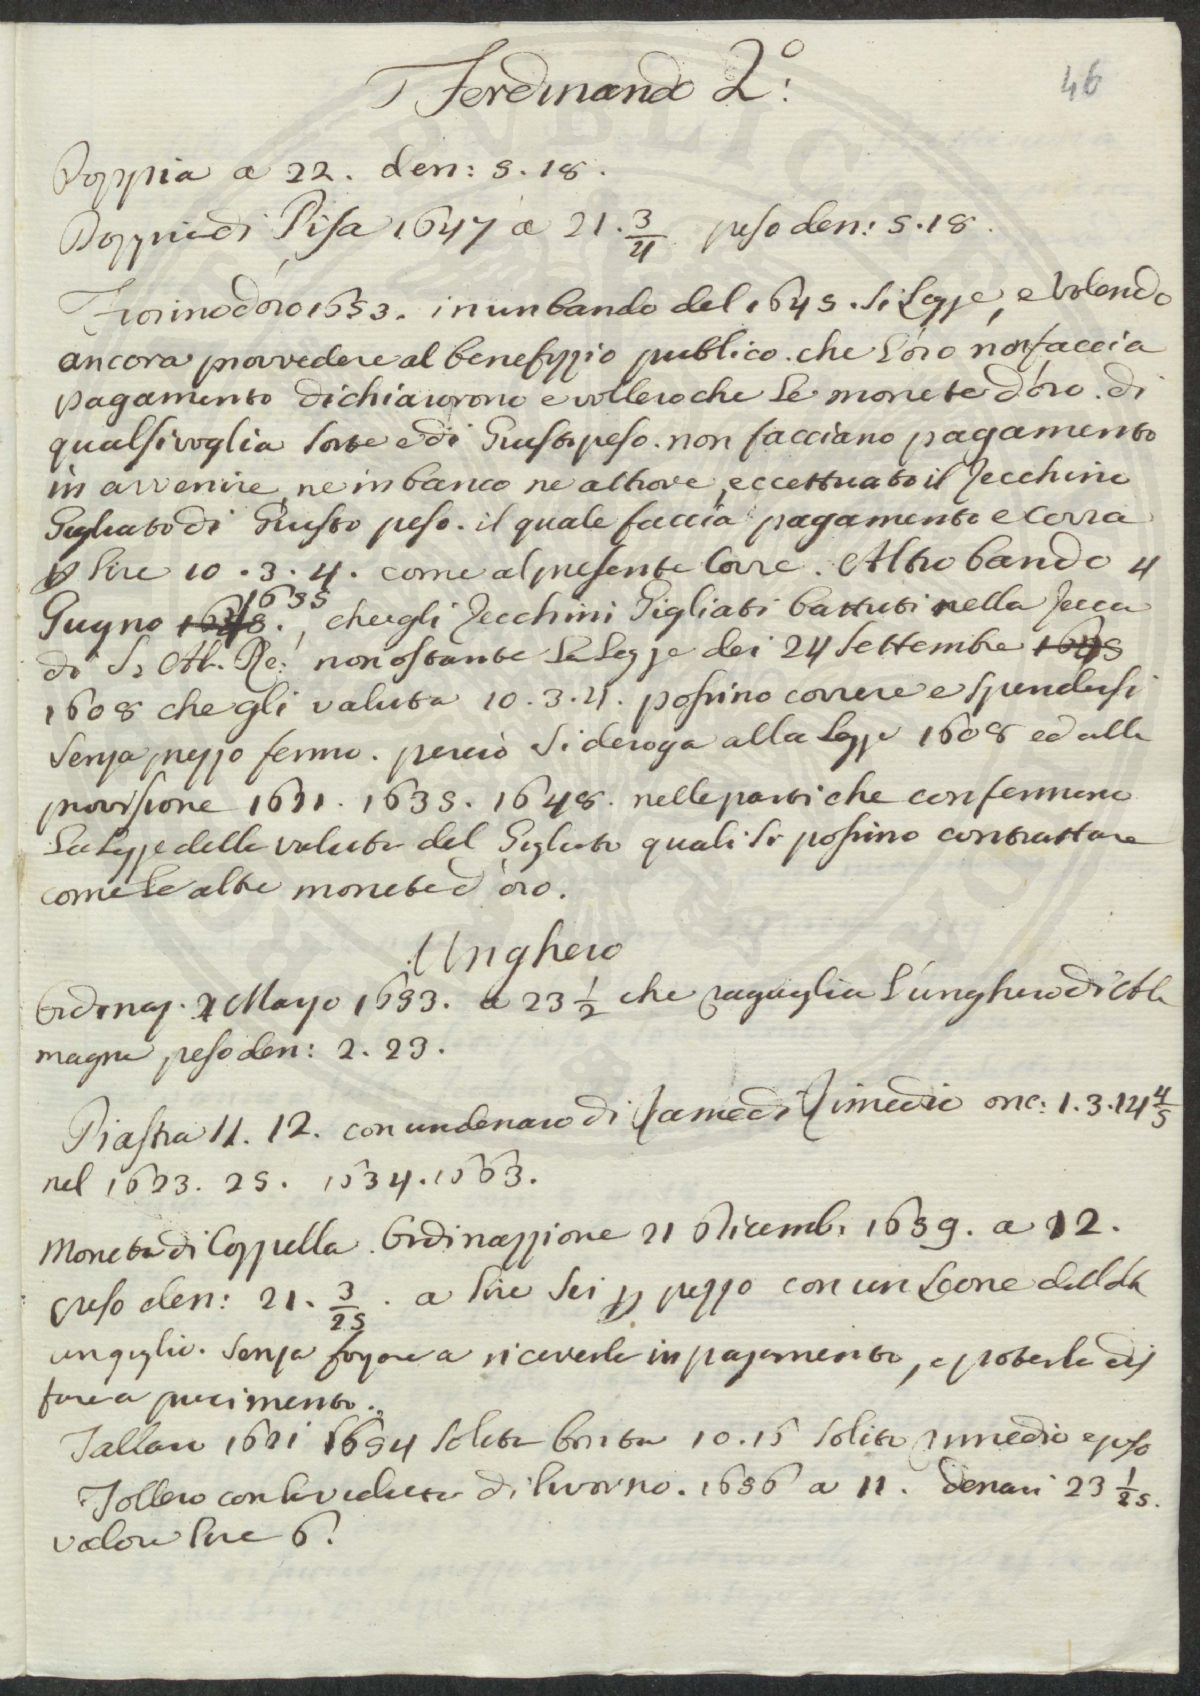 Ferdinando 2º:
46
Doppia a 22. den: 5.18.
Doppie di Pisa 1647 a 21. 3/4 peso den: 5.18.
Fiorino d'óro 1653. in un bando del 1645. si Legge, e Volendo
ancora provvedere al benefizzio publico. che L'óro non faccia
pagamento dichiarorono e vollero che Le monete d'óro. di
qualsivoglia sorte e di Giusto peso. non facciano pagamento
in avvenire, ne in banco ne altrove, eccettuato il Zecchino
Gigliato di Giusto peso. il quale faccia pagamento e corra
p Lire 10. 3. 4. come al presente Corre. Altro bando 4
Gugno 1655, che gli Zecchini Gigliati battuti nella Zecca
di S. Al. Re: non ostante La Legge dei 24 Settembre
1608 che gli valuta 10.3.4. possino correre e spendersi
senza prezzo fermo. perciò si deroga alla Legge 1608 ed alla
provisione 1621. 1635. 1648. nelle parti che confermono
La Legge della valuta del Gigliato quali si possino contrattare
come Le altre monete d'óro.
Unghero
Ordinaz. 7 Mayo 1653. a 23 1/2 che raguaglia L'únghero di Ale
magna peso den: 2. 23.
Piastra 11. 12. con un denaro di Rame di Rimedio onc: 1. 3. 14 4/5
nel 1623. 25. 1634. 1663.
Moneta di Coppella. Ordinazzione 21 Dicemb: 1639. a 12.
peso den: 21. 3/25. a Lire Sei p pezzo con un Leone dall'Altra
un giglio. senza forzare a riceverle in pagamento, e poterle dis
fare a piacimento.
Tallari 1621 1654 solita bontà 10.15 solito rimedio e peso
Tollero con la veduta di Livorno. 1656 a 11. denari 23 1/25.
valore Lire 6.